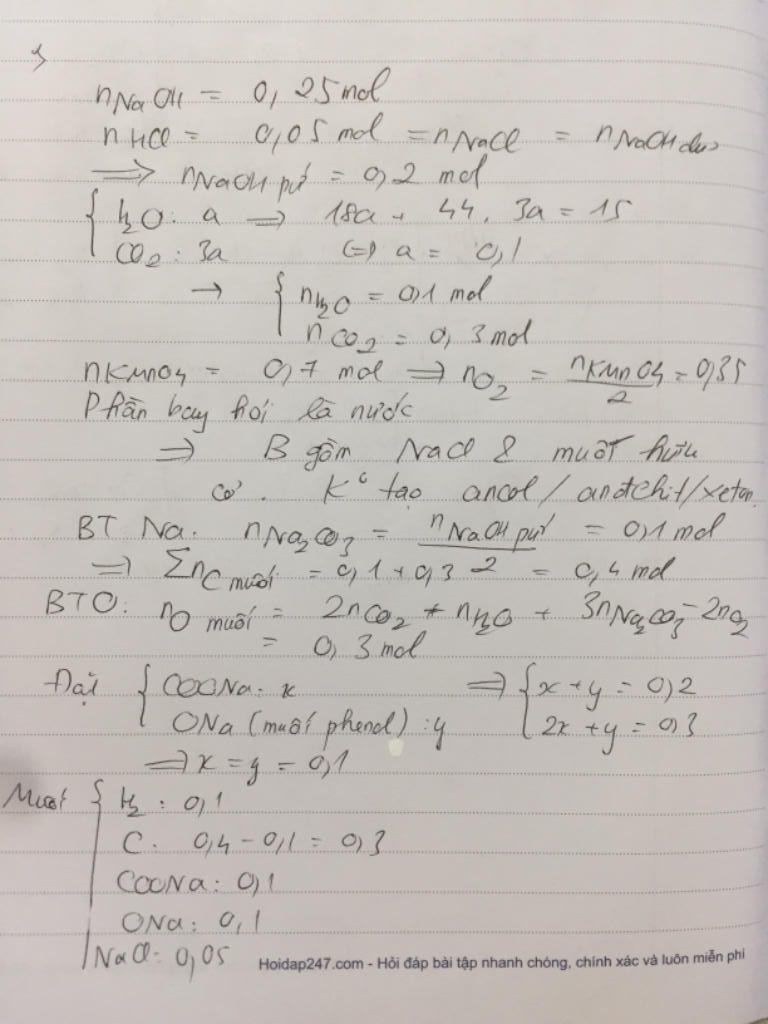 n NaOH = 0,25 mol
n HCl = 0,05 mol = n NaCl = n NaOH dư
=> n NaOH pứ = 0,2 mol
{ H2O: a => 18a + 44. 3a = 15
CO2: 3a (=) a = 0,1
→ { n H2O = 0,1 mol
n CO2 = 0,3 mol
n KMnO4 = 0,7 mol => n O2 = n KMnO4 / 2 = 0,35
Phần bay hơi là nước
=> B gồm NaCl & muối hữu
cơ. K° tạo ancol / anđehit / xeton
BT Na. n Na2CO3 = n NaOH pứ / 2 = 0,1 mol
=> Σn C muối = 0,1 + 0,3 = 0,4 mol
BTO: n O muối = 2n CO2 + n H2O + 3n Na2CO3 - 2n O2
= 0,3 mol
Đặt { COONa: x => { x + y = 0,2
ONa (muối phenol): y 2x + y = 0,3
=> x = y = 0,1
Muối { H2: 0,1
C. 0,4 - 0,1 = 0,3
COONa: 0,1
ONa: 0,1
NaCl: 0,05
Hoidap247.com - Hỏi đáp bài tập nhanh chóng, chính xác và luôn miễn phí